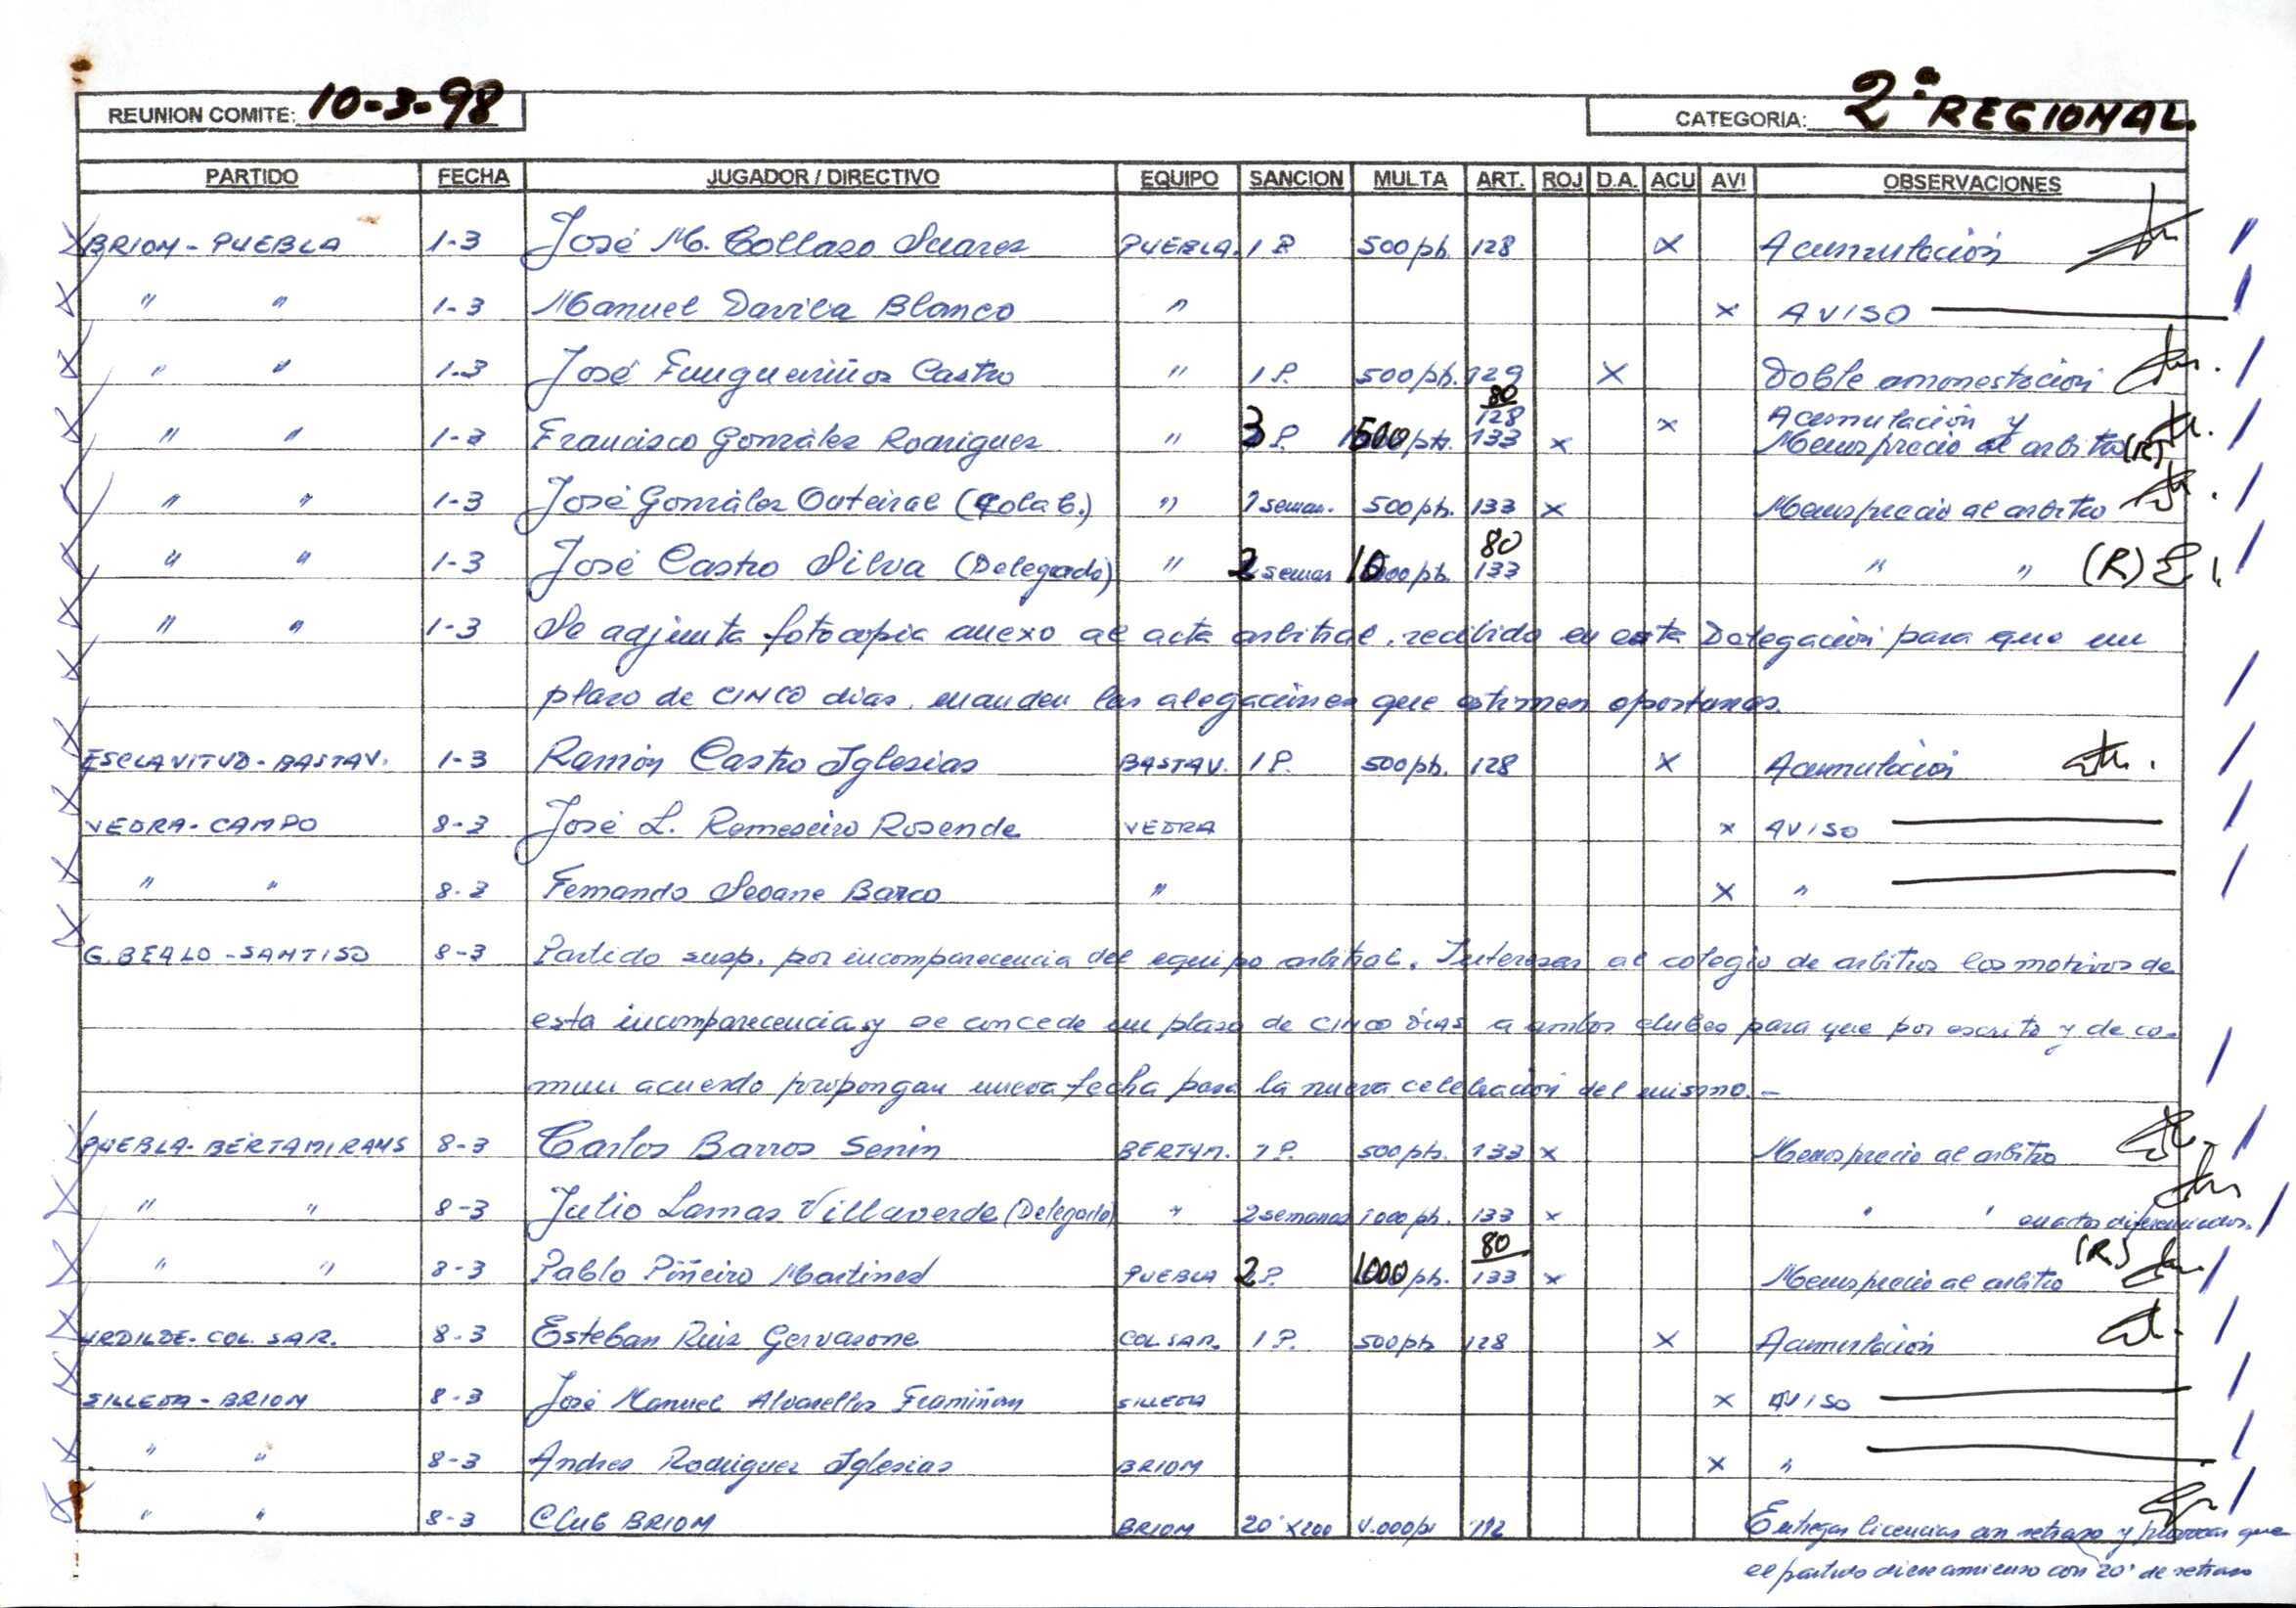 REUNION COMITE: 10-3-98 CATEGORIA: 2ª REGIONAL.
PARTIDO FECHA JUGADOR / DIRECTIVO EQUIPO SANCION MULTA ART. ROJ D.A. ACU AVI OBSERVACIONES
BRION - PUEBLA 1-3 José M. Collazo Suarez PUEBLA. 1 P. 500 pts. 128 X Acumulación
" " 1-3 Manuel Davila Blanco " X AVISO
" " 1-3 José Fungueiriños Castro " 1 P. 500 pts. 129 X Doble amonestación
80
" " 1-3 Francisco González Rodriguez " 3 P. 1500 pts. 128 133 X X Acumulación y Menosprecio al arbitro (R)
" " 1-3 José González Outeiral (Colab.) " 1 seman. 500 pts. 133 X Menosprecio al arbitro
80
" " 1-3 José Castro Silva (Delegado) " 2 seman 1000 pts. 133 " " (R)
" " 1-3 Se adjunta fotocopia anexo al acta arbitral, recibido en esta Delegación para que un
plazo de CINCO dias, manden las alegaciones que estimen oportunas.
ESCLAVITUD - BASTAV. 1-3 Ramón Castro Iglesias BASTAV. 1 P. 500 pts. 128 X Acumulación
VEDRA - CAMPO 8-3 José L. Romeseiro Rosende VEDRA X AVISO
" " 8-3 Fernando Seoane Barco " X "
G. BEALO - SANTISO 8-3 Partido susp. por incomparecencia del equipo arbitral. Interesar al colegio de arbitros los motivos de
esta incomparecencia y se concede un plazo de CINCO DIAS a ambos clubes para que por escrito y de co-
mun acuerdo propongan nueva fecha para la nueva celebración del mismo. -
PUEBLA - BERTAMIRANS 8-3 Carlos Barros Senin BERTAM. 1 P. 500 pts. 133 X Menosprecio al arbitro
" " 8-3 Julio Lamas Villaverde (Delegado) " 2 semanas 1000 pts. 133 X " " en actas diferenciados.
80
" " 8-3 Pablo Piñeiro Martinez PUEBLA 2 P. 1000 pts. 133 X Menosprecio al arbitro (R)
URDILDE - COL. SAR. 8-3 Esteban Ruiz Gervasone COL. SAR. 1 P. 500 pts 128 X Acumulación
SILLEDA - BRION 8-3 José Manuel Alvarellos Framiñan SILLEDA X AVISO
" " 8-3 Andres Rodriguez Iglesias BRION X "
" " 8-3 CLUB BRION BRION 20' X 200 4.000 pt 112 Entregar licencias con retraso y provocar que
el partido diese comienzo con 20' de retraso